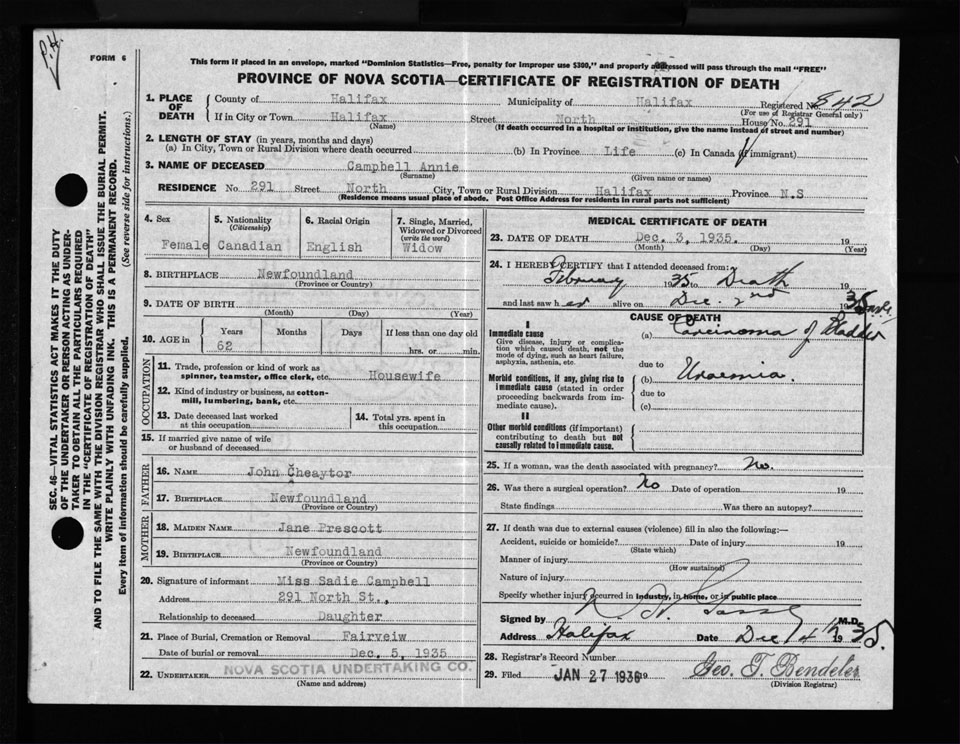 P.H.
FORM 6
This form if placed in an envelope, marked "Dominion Statistics—Free, penalty for improper use $300," and properly addressed will pass through the mail "FREE"
PROVINCE OF NOVA SCOTIA—CERTIFICATE OF REGISTRATION OF DEATH
SEC. 46—VITAL STATISTICS ACT MAKES IT THE DUTY
OF THE UNDERTAKER OR PERSON ACTING AS UNDER-
TAKER TO OBTAIN ALL THE PARTICULARS REQUIRED
IN THE "CERTIFICATE OF REGISTRATION OF DEATH"
AND TO FILE THE SAME WITH THE DIVISION REGISTRAR WHO SHALL ISSUE THE BURIAL PERMIT.
WRITE PLAINLY WITH UNFADING INK. THIS IS A PERMANENT RECORD.
Every item of information should be carefully supplied. (See reverse side for instructions.)
1. PLACE OF DEATH
County of Halifax Municipality of Halifax Registered No. 842
(For use of Registrar General only)
If in City or Town Halifax Street North House No. 291
(Name) (If death occurred in a hospital or institution, give the name instead of street and number)
2. LENGTH OF STAY (in years, months and days)
(a) In City, Town or Rural Division where death occurred (b) In Province Life (c) In Canada (if immigrant)
3. NAME OF DECEASED Campbell Annie
(Surname) (Given name or names)
RESIDENCE No. 291 Street North City, Town or Rural Division Halifax Province N.S
(Residence means usual place of abode. Post Office Address for residents in rural parts not sufficient)
4. Sex
Female
5. Nationality
(Citizenship)
Canadian
6. Racial Origin
English
7. Single, Married,
Widowed or Divorced
(write the word)
Widow
8. BIRTHPLACE Newfoundland
(Province or Country)
9. DATE OF BIRTH
(Month) (Day) (Year)
10. AGE in
Years Months Days If less than one day old
62 hrs. or min.
OCCUPATION
11. Trade, profession or kind of work as
spinner, teamster, office clerk, etc. Housewife
12. Kind of industry or business, as cotton-
mill, lumbering, bank, etc.
13. Date deceased last worked
at this occupation
14. Total yrs. spent in
this occupation
15. If married give name of wife
or husband of deceased
FATHER
16. NAME John Cheaytor
17. BIRTHPLACE Newfoundland
(Province or Country)
MOTHER
18. MAIDEN NAME Jane Prescott
19. BIRTHPLACE Newfoundland
(Province or Country)
20. Signature of informant Miss Sadie Campbell
Address 291 North St.,
Relationship to deceased Daughter
21. Place of Burial, Cremation or Removal Fairveiw
Date of burial or removal Dec. 5, 1935
22. UNDERTAKER NOVA SCOTIA UNDERTAKING CO.
(Name and address)
MEDICAL CERTIFICATE OF DEATH
23. DATE OF DEATH Dec. 3, 1935. 19
(Month) (Day) (Year)
24. I HEREBY CERTIFY that I attended deceased from:
February 1935 to Death
and last saw her alive on Dec. 2nd 1935
CAUSE OF DEATH
I
Immediate cause
Give disease, injury or complica-
tion which caused death, not the
mode of dying, such as heart failure,
asphyxia, asthenia, etc.
(a) Carcinoma of Bladder
due to
Morbid conditions, if any, giving rise to
immediate cause (stated in order
proceeding backwards from im-
mediate cause).
(b) Uraemia.
due to
(c)
II
Other morbid conditions (if important)
contributing to death but not
causally related to immediate cause.
25. If a woman, was the death associated with pregnancy? No.
26. Was there a surgical operation? No Date of operation 19
State findings Was there an autopsy?
27. If death was due to external causes (violence) fill in also the following:—
Accident, suicide or homicide? Date of injury 19
(State which)
Manner of injury
(How sustained)
Nature of injury
Specify whether injury occurred in industry, in home, or in public place
Signed by M.D.
Address Halifax Date Dec 4th 1935.
28. Registrar's Record Number
29. Filed JAN 27 1936 19 Geo. T. Bendeler
(Division Registrar)